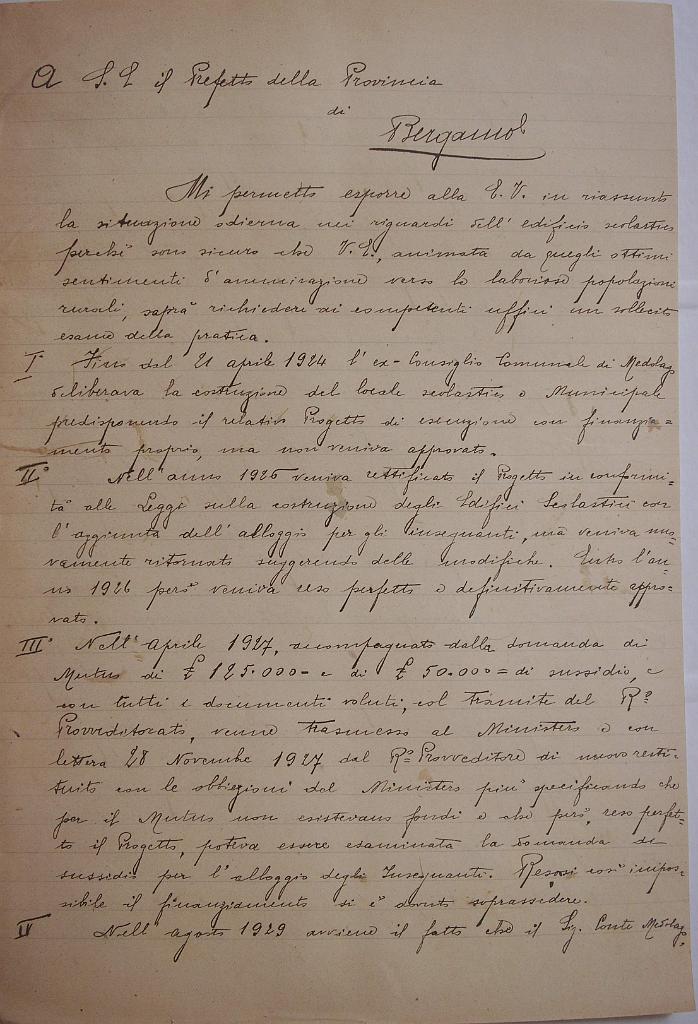 A S. E. il Prefetto della Provincia
di
Bergamo
Mi permetto esporre alla E. V. in riassunto
la situazione odierna nei riguardi dell' edificio scolastico
perchè sono sicuro che V. E., animata da quegli ottimi
sentimenti d'ammirazione verso le laboriose popolazioni
rurali, saprà richiedere ai competenti uffici un sollecito
esame della pratica.
I° Fino dal 21 aprile 1924 l' ex-Consiglio Comunale di Medolago
deliberava la costruzione del locale scolastico e Municipale
predisponendo il relativo Progetto di esecuzione con finanzia=
mento proprio, ma non veniva approvato.
II° Nell' anno 1925 veniva rettificato il Progetto in conformi=
tà alle Leggi sulla costruzione degli Edifici Scolastici con
l' aggiunta dell' alloggio per gli insegnanti, ma veniva nuo=
vamente ritornato suggerendo delle modifiche. Entro l'an=
no 1926 però veniva reso perfetto e definitivamente appro=
vato.
III° Nell' Aprile 1927, accompagnato dalla domanda di
Mutuo di £ 125.000= e di £ 50.000= di sussidio, e
con tutti i documenti voluti, col tramite del R°
Provveditorato, venne trasmesso al Ministero e con
lettera 28 Novembre 1927 dal R° Provveditore di nuovo resti=
tuito con le obbiezioni del Ministero più specificando che
per il Mutuo non esistevano fondi e che però, reso perfet=
to il Progetto, poteva essere esaminata la domanda di
sussidio per l' alloggio degli Insegnanti. Resosi così impos=
sibile il finanziamento si è dovuto soprassedere.
IV° Nell' agosto 1929 avviene il fatto che il Sig. Conte Medolago